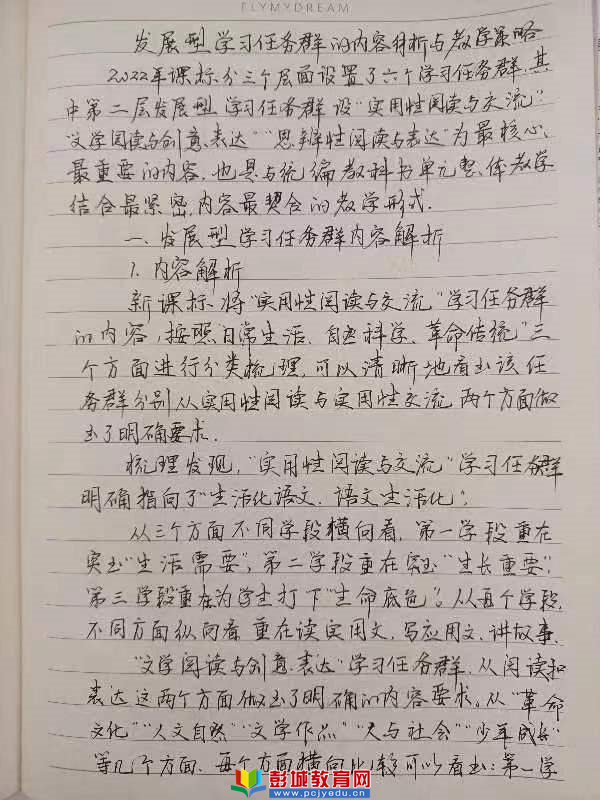 FLYMYDREAM
发展型学习任务群的内容分析与教学策略
2022年课标,分三个层面设置了六个学习任务群,其
中第二层发展型学习任务群设“实用性阅读与交流”
“文学阅读与创意表达”“思辨性阅读与表达”为最核心、
最重要的内容,也是与统编教科书单元整体教学
结合最紧密,内容最契合的教学形式.
一、发展型学习任务群内容解析
1.内容解析
新课标,将“实用性阅读与交流”学习任务群
的内容,按照“日常生活、自然科学、革命传统”三
个方面进行分类梳理,可以清晰地看出该任
务群分别从实用性阅读与实用性交流两个方面做
出了明确要求.
梳理发现,“实用性阅读与交流”学习任务群
明确指向了“生活化语文,语文生活化”;
从三个方面不同学段横向看,第一学段重在
突出“生活需要”,第二学段重在突出“生长重要”;
第三学段重在为学生打下“生命底色”;从每个学段,
不同方面纵向看,重在读实用文,写应用文,讲故事.
“文学阅读与创意表达”学习任务群,从阅读和
表达这两个方面做出了明确的内容要求。从“革命
文化”“人文自然”“文学作品”“人与社会”“少年成长”
等几个方面,每个方面横向比较可以看出:第一学
彭城教育网
www.pcjyedu.cn